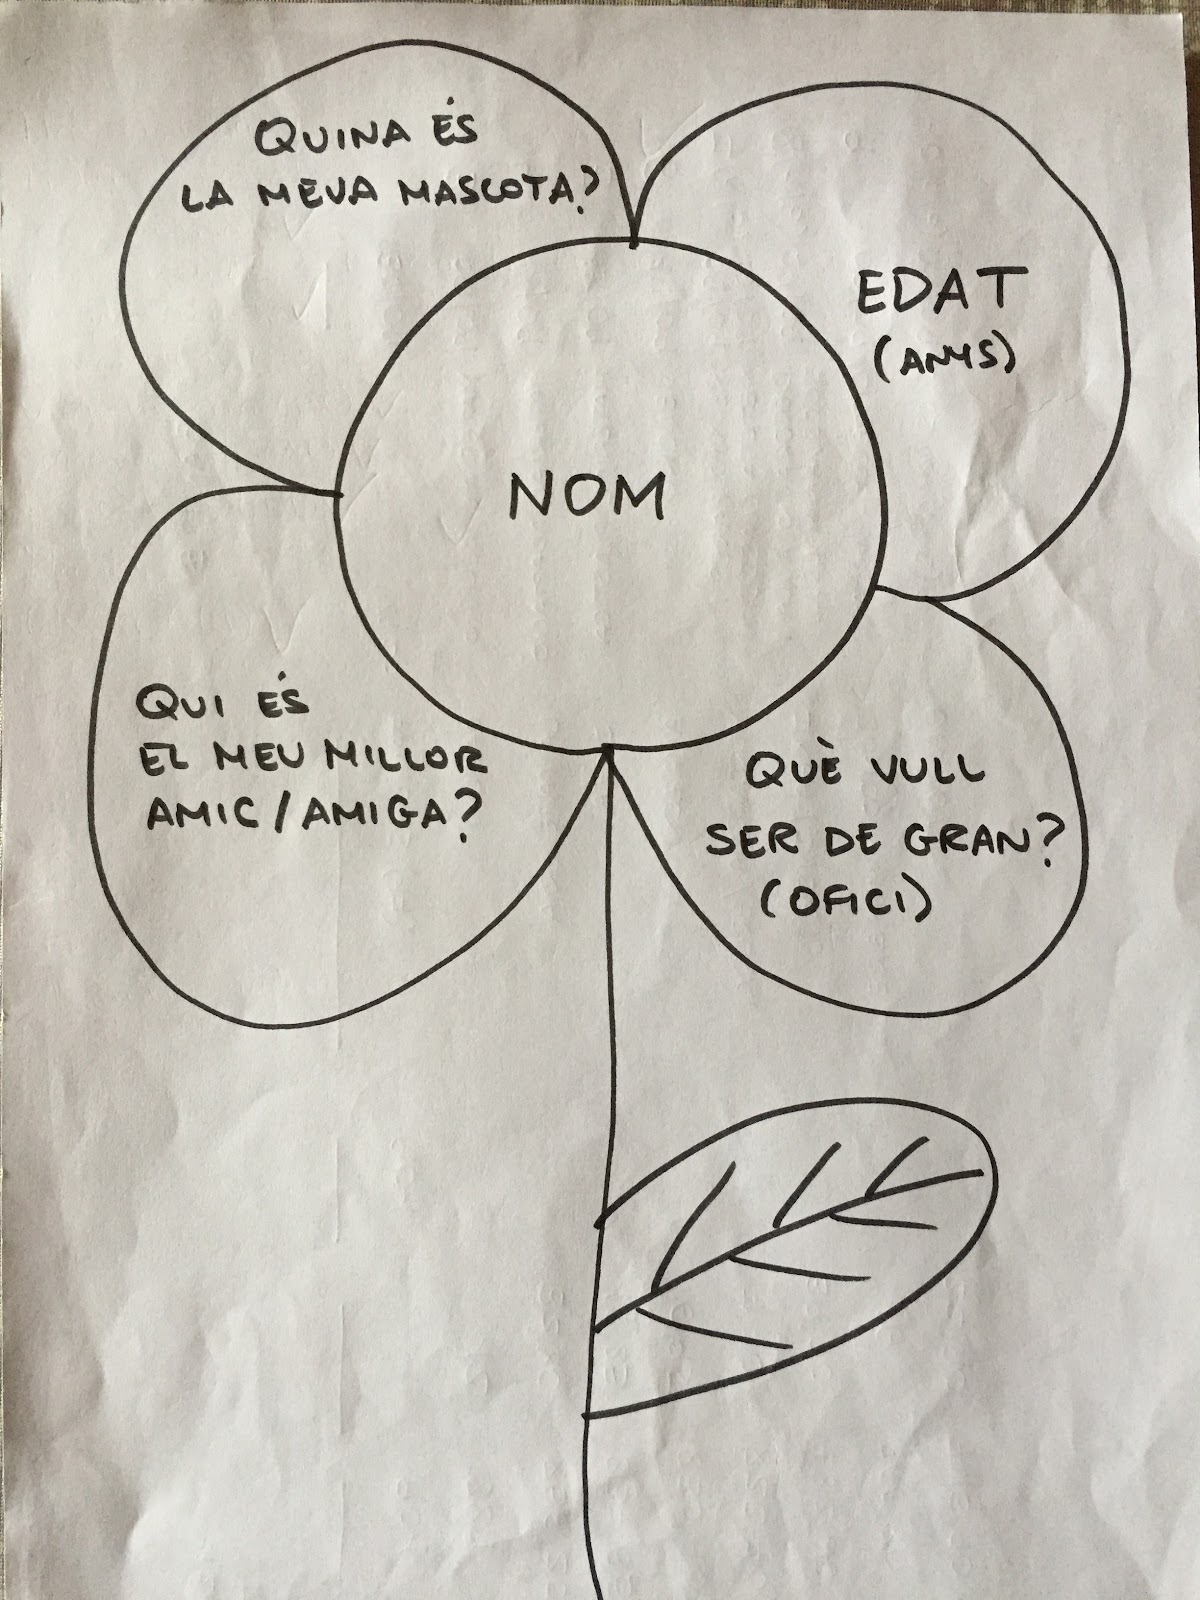 QUINA ÉS
LA MEVA MASCOTA?
EDAT
(ANYS)
NOM
QUI ÉS
EL MEU MILLOR
AMIC/AMIGA?
QUÈ VULL
SER DE GRAN?
(OFICI)